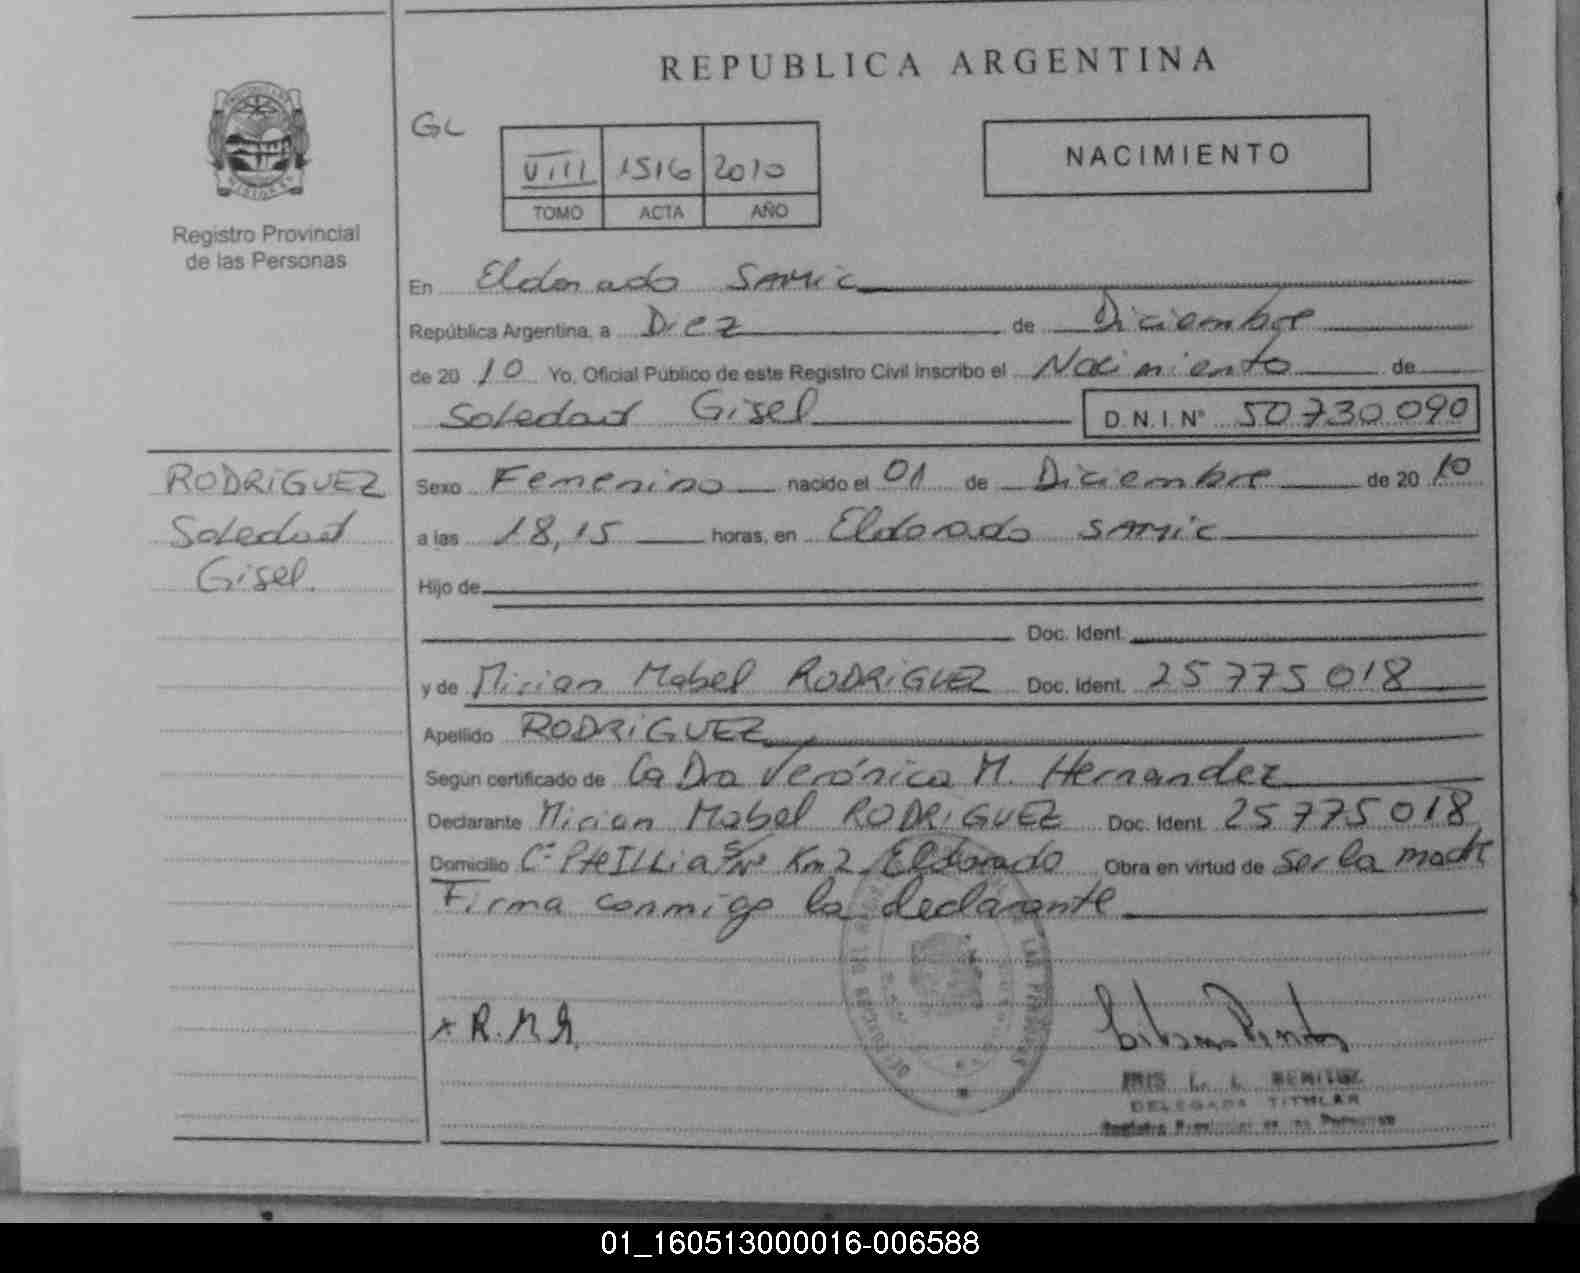 REPUBLICA ARGENTINA
GL
VIII 1516 2010
TOMO ACTA AÑO
NACIMIENTO
Registro Provincial
de las Personas
En Eldorado SAMIC
República Argentina, a Diez de Diciembre
de 20 10 Yo, Oficial Público de este Registro Civil inscribo el Nacimiento de
Soledad Gisel D.N.I. Nº 50730090
RODRIGUEZ
Soledad
Gisel.
Sexo Femenino nacido el 01 de Diciembre de 20 10
a las 18,15 horas, en Eldorado SAMIC
Hijo de
Doc. Ident.
y de Mirian Mabel RODRIGUEZ Doc. Ident. 25775018
Apellido RODRIGUEZ
Según certificado de La Dra Verónica M. Hernandez
Declarante Mirian Mabel RODRIGUEZ Doc. Ident. 25775018
Domicilio Cº s/Nº Km 2 Eldorado Obra en virtud de ser la madre
Firma conmigo la declarante
x R.M.
IRIS L. BENITEZ
DELEGADA TITULAR
Registro Provincial de las Personas
01_160513000016-006588